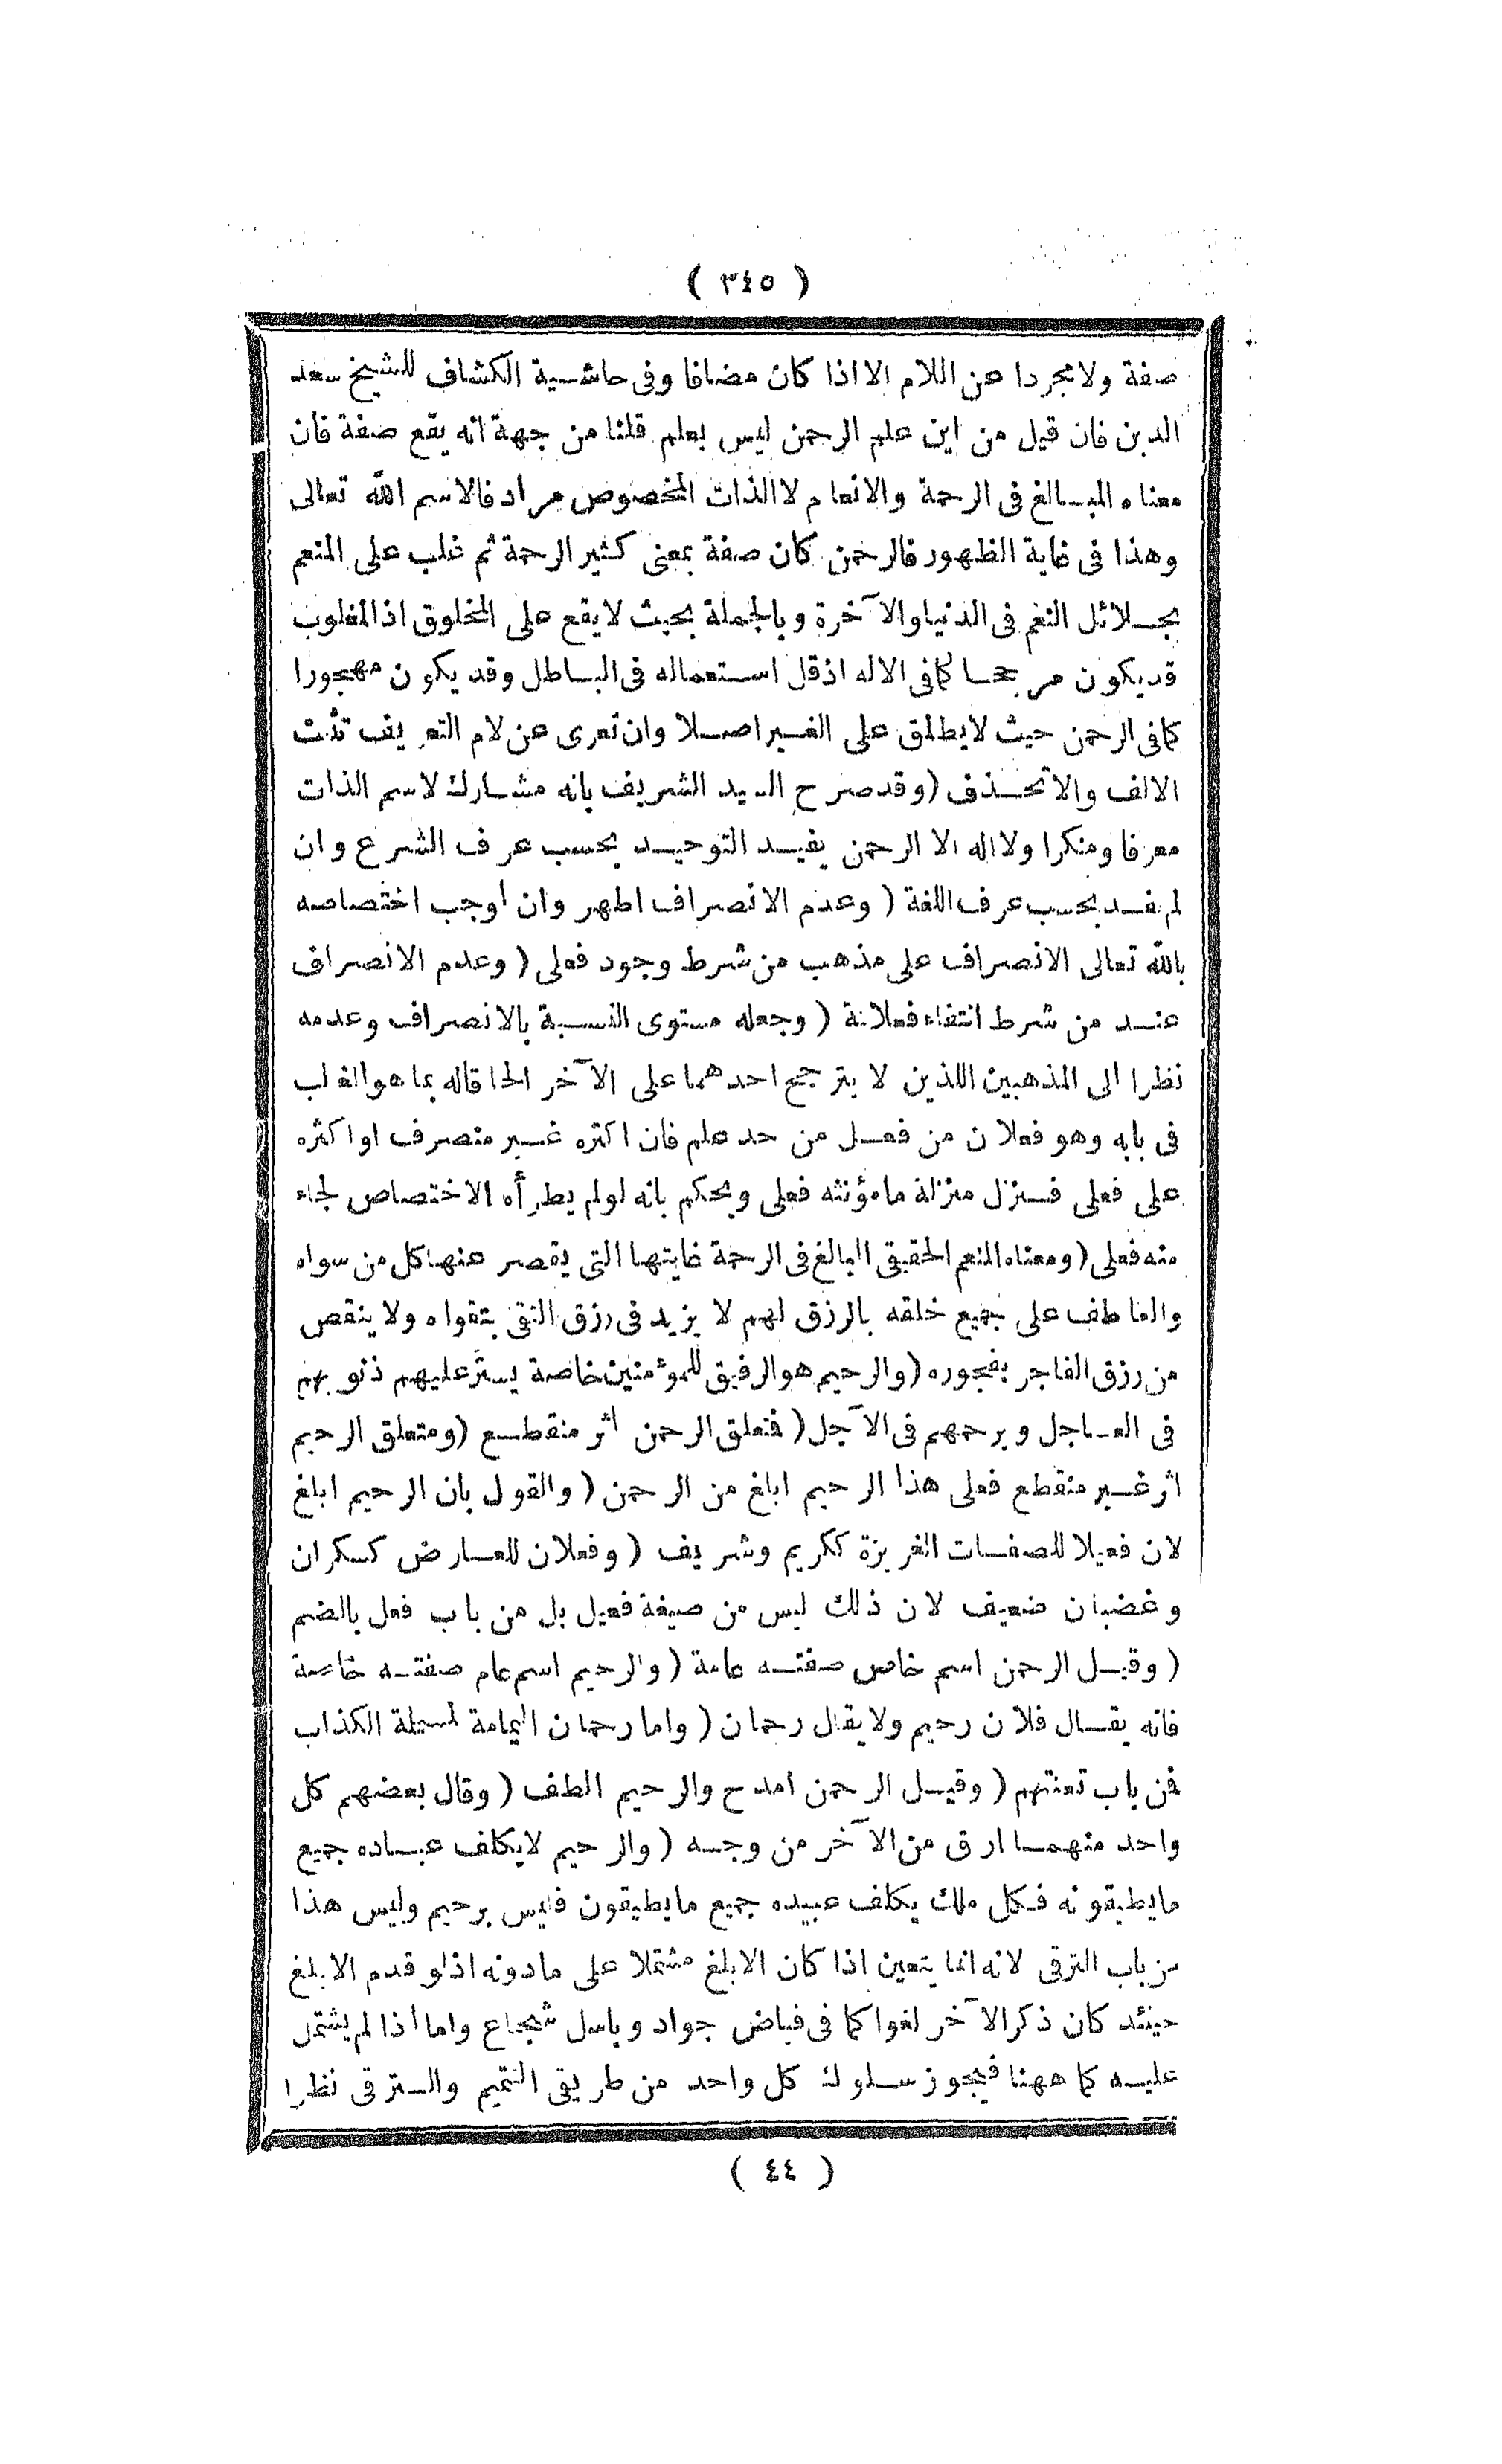 ( ٣٤٥ )
صفة ولا مجردا عن اللام الا اذا كان مضافا وفى حاشية الكشاف للشيخ سعد
الدين فان قيل من اين علم الرحمن ليس بعلم قلنا من جهة انه يقع صفة فان
معناه المبالغ فى الرحمة والانعام لا الذات المخصوص مرادفا لاسم الله تعالى
وهذا فى غاية الظهور فالرحمن كان صفة بمعنى كثير الرحمة ثم غلب على المنعم
بجلائل النعم فى الدنيا والآخرة وبالجملة بحيث لا يقع على المخلوق اذ المغلوب
قد يكون مرجحا كما فى الاله اذ قل استعماله فى الباطل وقد يكون مهجورا
كما فى الرحمن حيث لا يطلق على الغير اصلا وان تعرى عن لام التعريف تثبت
الالف والا تحذف (وقد صرح السيد الشريف بانه مشارك لاسم الذات
معرفا ومنكرا ولا اله الا الرحمن يفيد التوحيد بحسب عرف الشرع وان
لم يفد بحسب عرف اللغة (وعدم الانصراف اظهر وان اوجب اختصاصه
بالله تعالى الانصراف على مذهب من شرط وجود فعلى (وعدم الانصراف
عند من شرط انتفاء فعلانة (وجعله مستوى النسبة بالانصراف وعدمه
نظرا الى المذهبين اللذين لا يترجح احدهما على الآخر الحاقاله بما هو الغالب
فى بابه وهو فعلان من فعل من حد علم فان اكثره غير منصرف او اكثره
على فعلى فينزل منزلة ما مؤنثه فعلى ويحكم بانه لو لم يطرأه الاختصاص لجاء
منه فعلى (ومعناه المنعم الحقيقى البالغ فى الرحمة غايتها التى يقصر عنها كل من سواه
والعاطف على جميع خلقه بالرزق لهم لا يزيد فى رزق التقى بتقواه ولا ينقص
من رزق الفاجر بفجوره (والرحيم هو الرفيق للمؤمنين خاصة يستر عليهم ذنوبهم
فى العاجل ويرحمهم فى الآجل (فتعلق الرحمن اثر منقطع (ومتعلق الرحيم
اثر غير منقطع فعلى هذا الرحيم ابلغ من الرحمن (والقول بان الرحيم ابلغ
لان فعيلا للصفات الغريزة ككريم وشريف (وفعلان للعارض كسكران
وغضبان ضعيف لان ذلك ليس من صيغة فعيل بل من باب فعل بالضم
(وقيل الرحمن اسم خاص صفته عامة (والرحيم اسم عام صفته خاصة
فانه يقال فلان رحيم ولا يقال رحمان (واما رحمان اليمامة لمسيلة الكذاب
فمن باب تعنتهم (وقيل الرحمن امدح والرحيم الطف (وقال بعضهم كل
واحد منهما ارق من الآخر من وجه (والرحيم لا يكلف عباده جميع
ما يطيقونه فكل ملك يكلف عبيده جميع ما يطيقون فليس برحيم وليس هذا
من باب الترقى لانه انما يتعين اذا كان الابلغ مشتملا على مادونه اذ لو قدم الابلغ
حينئد كان ذكر الآخر لغوا كما فى فياض جواد وباسل شجاع واما اذا لم يشتمل
عليه كما ههنا فيجوز سلوك كل واحد من طريقى التتميم والترقى نظرا
( ٤٤ )